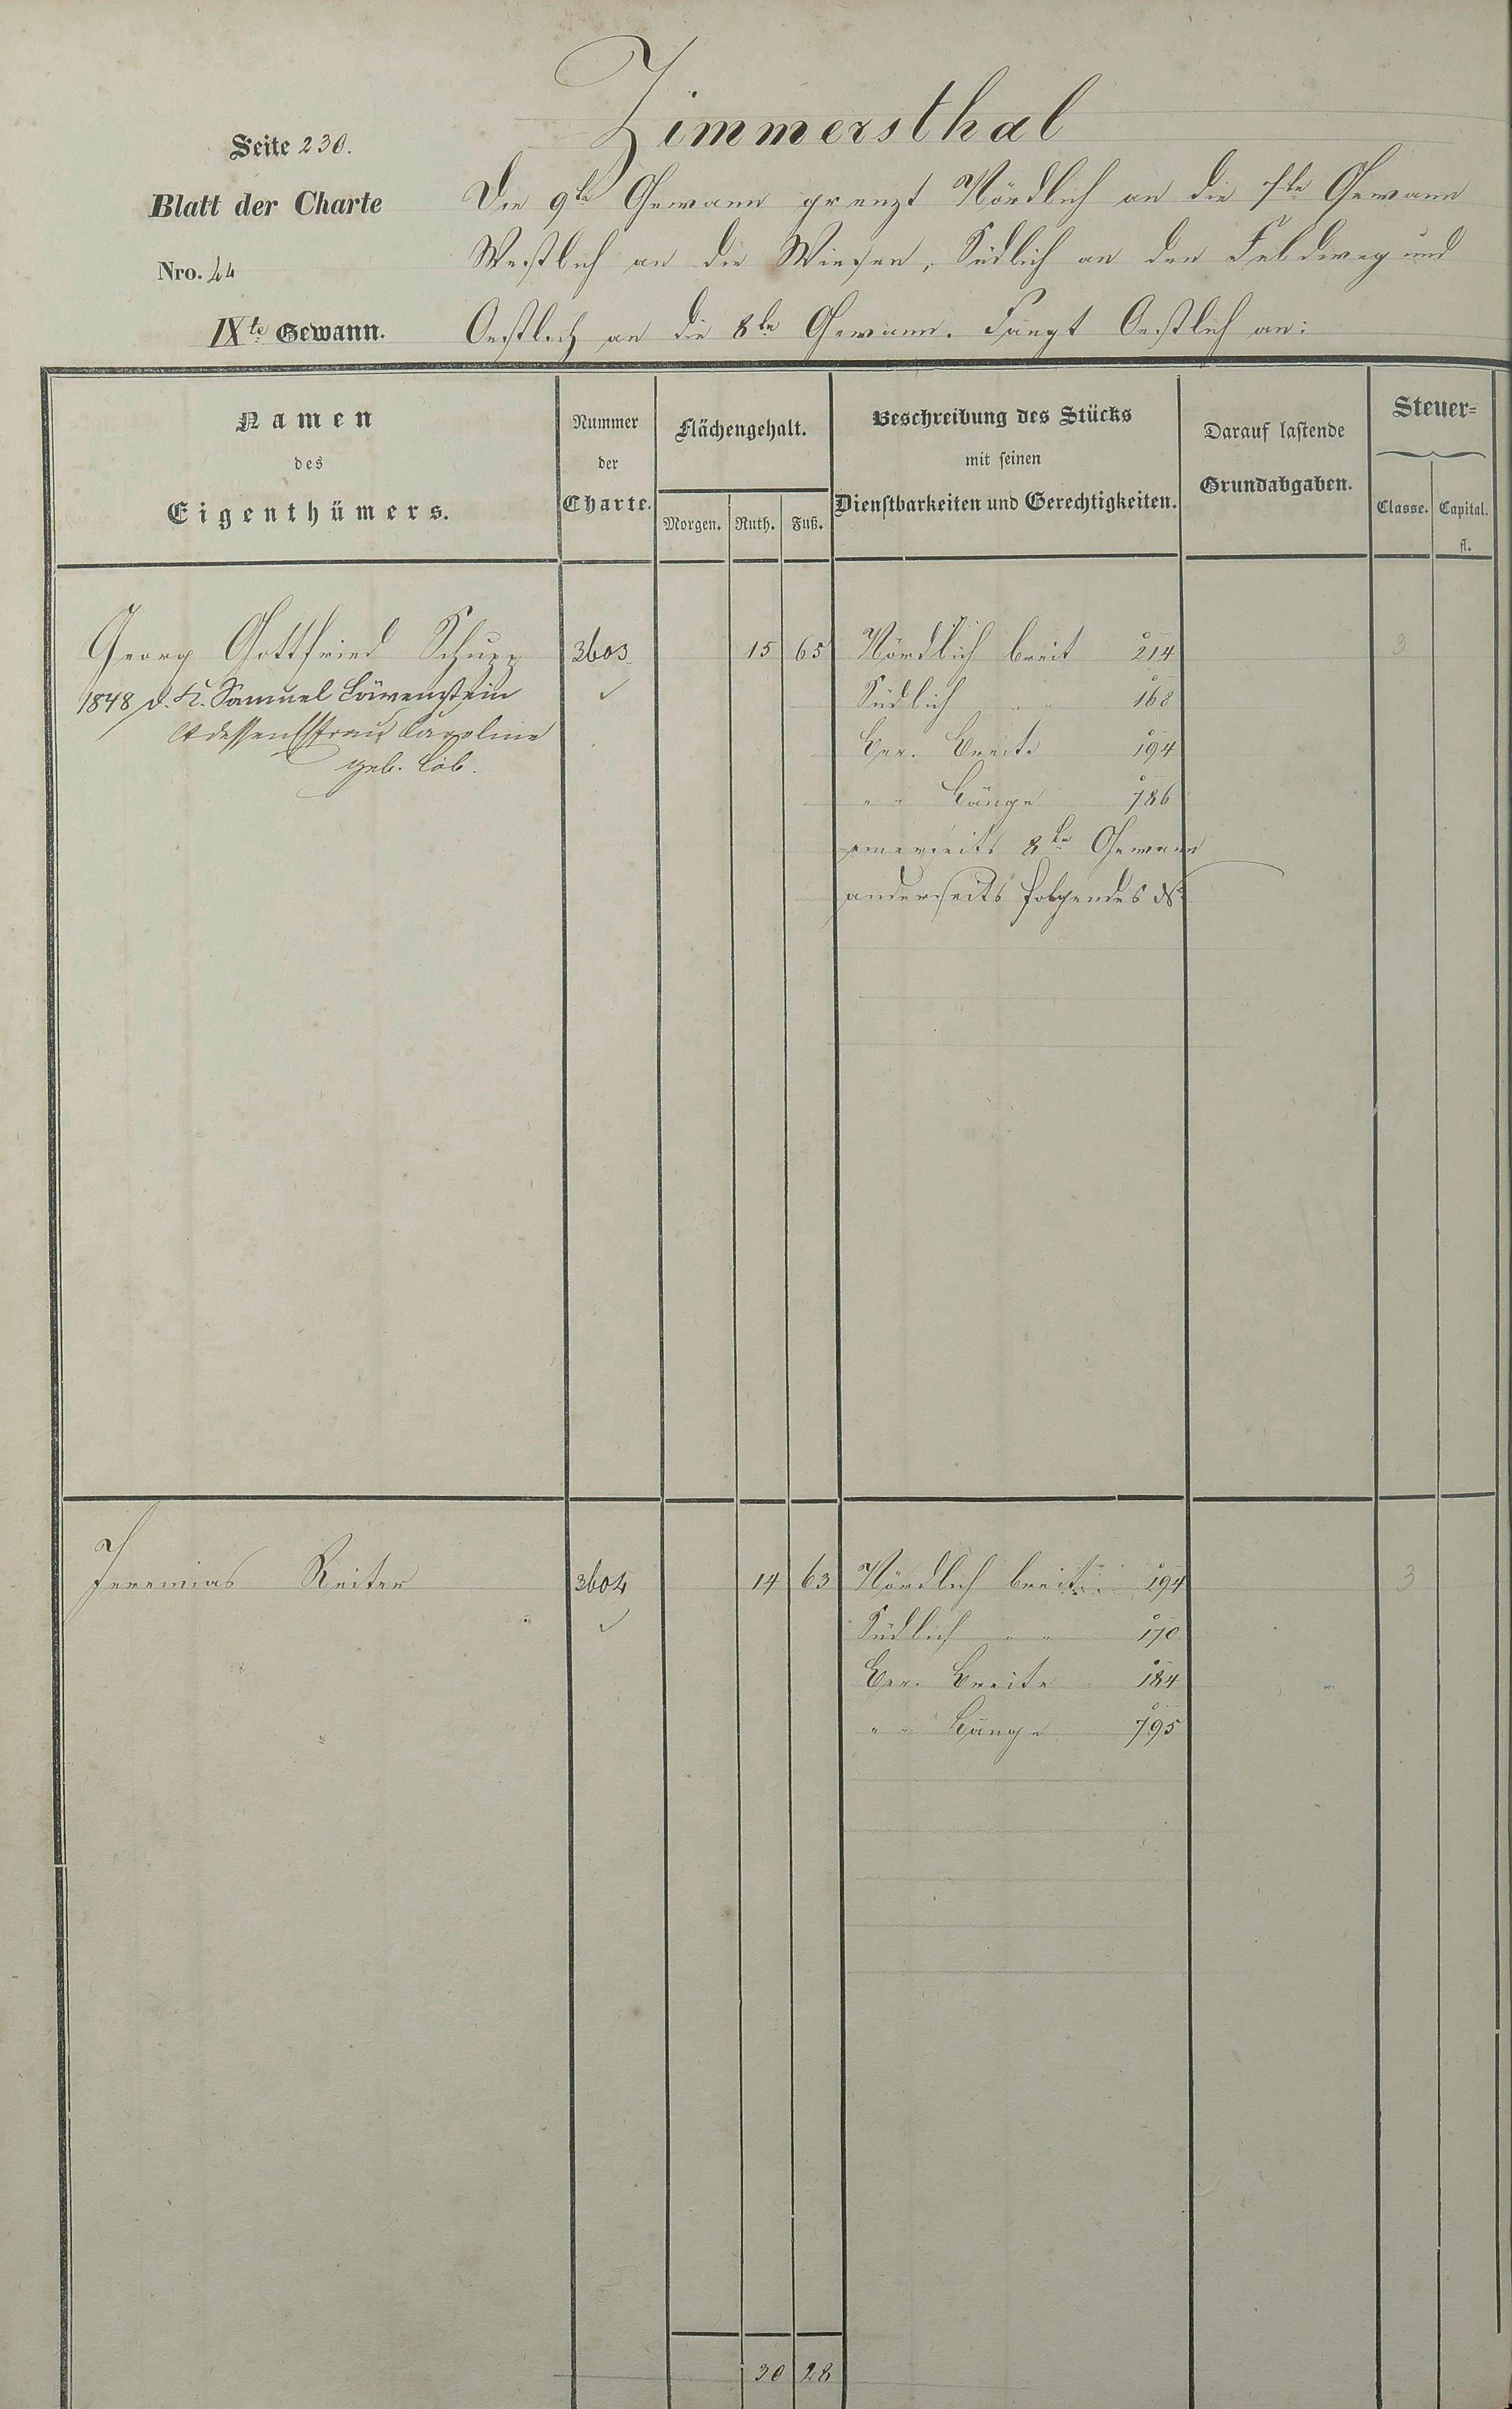 Zimmersthal
Seite 230.
Blatt der Charte
Nro. 44
IXte Gewann.
Die 9te Gewann grenzt Nördlich an die 7te Gewann
Westlich an die Wiesen, Südlich an den Feldweg und
Oestlich an die 8te Gewann. Fängt Oestlich an:
Namen
des
Eigenthümers.
Nummer
der
Charte.
Flächengehalt.
Morgen. Ruth. Fuß.
Beschreibung des Stücks
mit seinen
Dienstbarkeiten und Gerechtigkeiten.
Darauf lastende
Grundabgaben.
Steuer=
Classe. Capital.
fl.
Georg Gottfried Schupp 3603 15 65 Nördlich breit 214 3
1848 d. K. Samuel Löwenstein Südlich " " 168
dessen Efrau Karoline Ger. Breite 194
geb. Löb.
" " Länge 786
einerseits 8te Gewann
anderseits folgendes
Jeremias Reiter 3604 14 63 Nördlich breit 194 3
Südlich " " 170
Ger. Breite 184
" " Länge 795
30 28